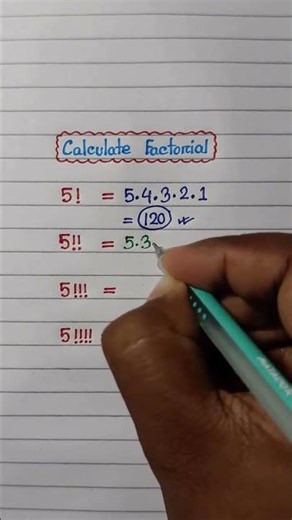 Calculate Factorial
5! = 5.4.3.2.1
= 120
5!! = 5.3.
5!!! =
5!!!!